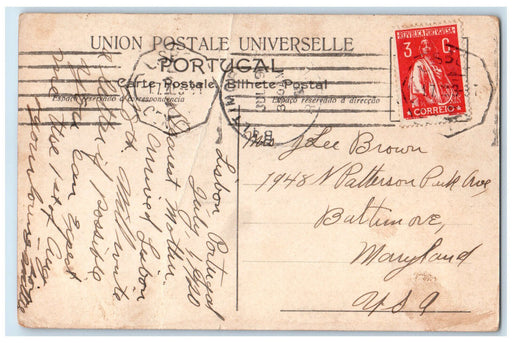 UNION POSTALE UNIVERSELLE
PORTUGAL
Carte Postale Bilhete Postal
Espaço reservado á correspondencia
Espaço reservado á direcção
REPUBLICA PORTUGUESA
3 C.
CORREIO
Lisbon Portugal
July 1, 1920
Dearest Mother
Arrived Lisbon
Will write
a letter if possible
You can expect
me the 1st of Aug
Your loving
Mrs J Lee Brown
1948 N Patterson Park Ave,
Baltimore,
Maryland
USA